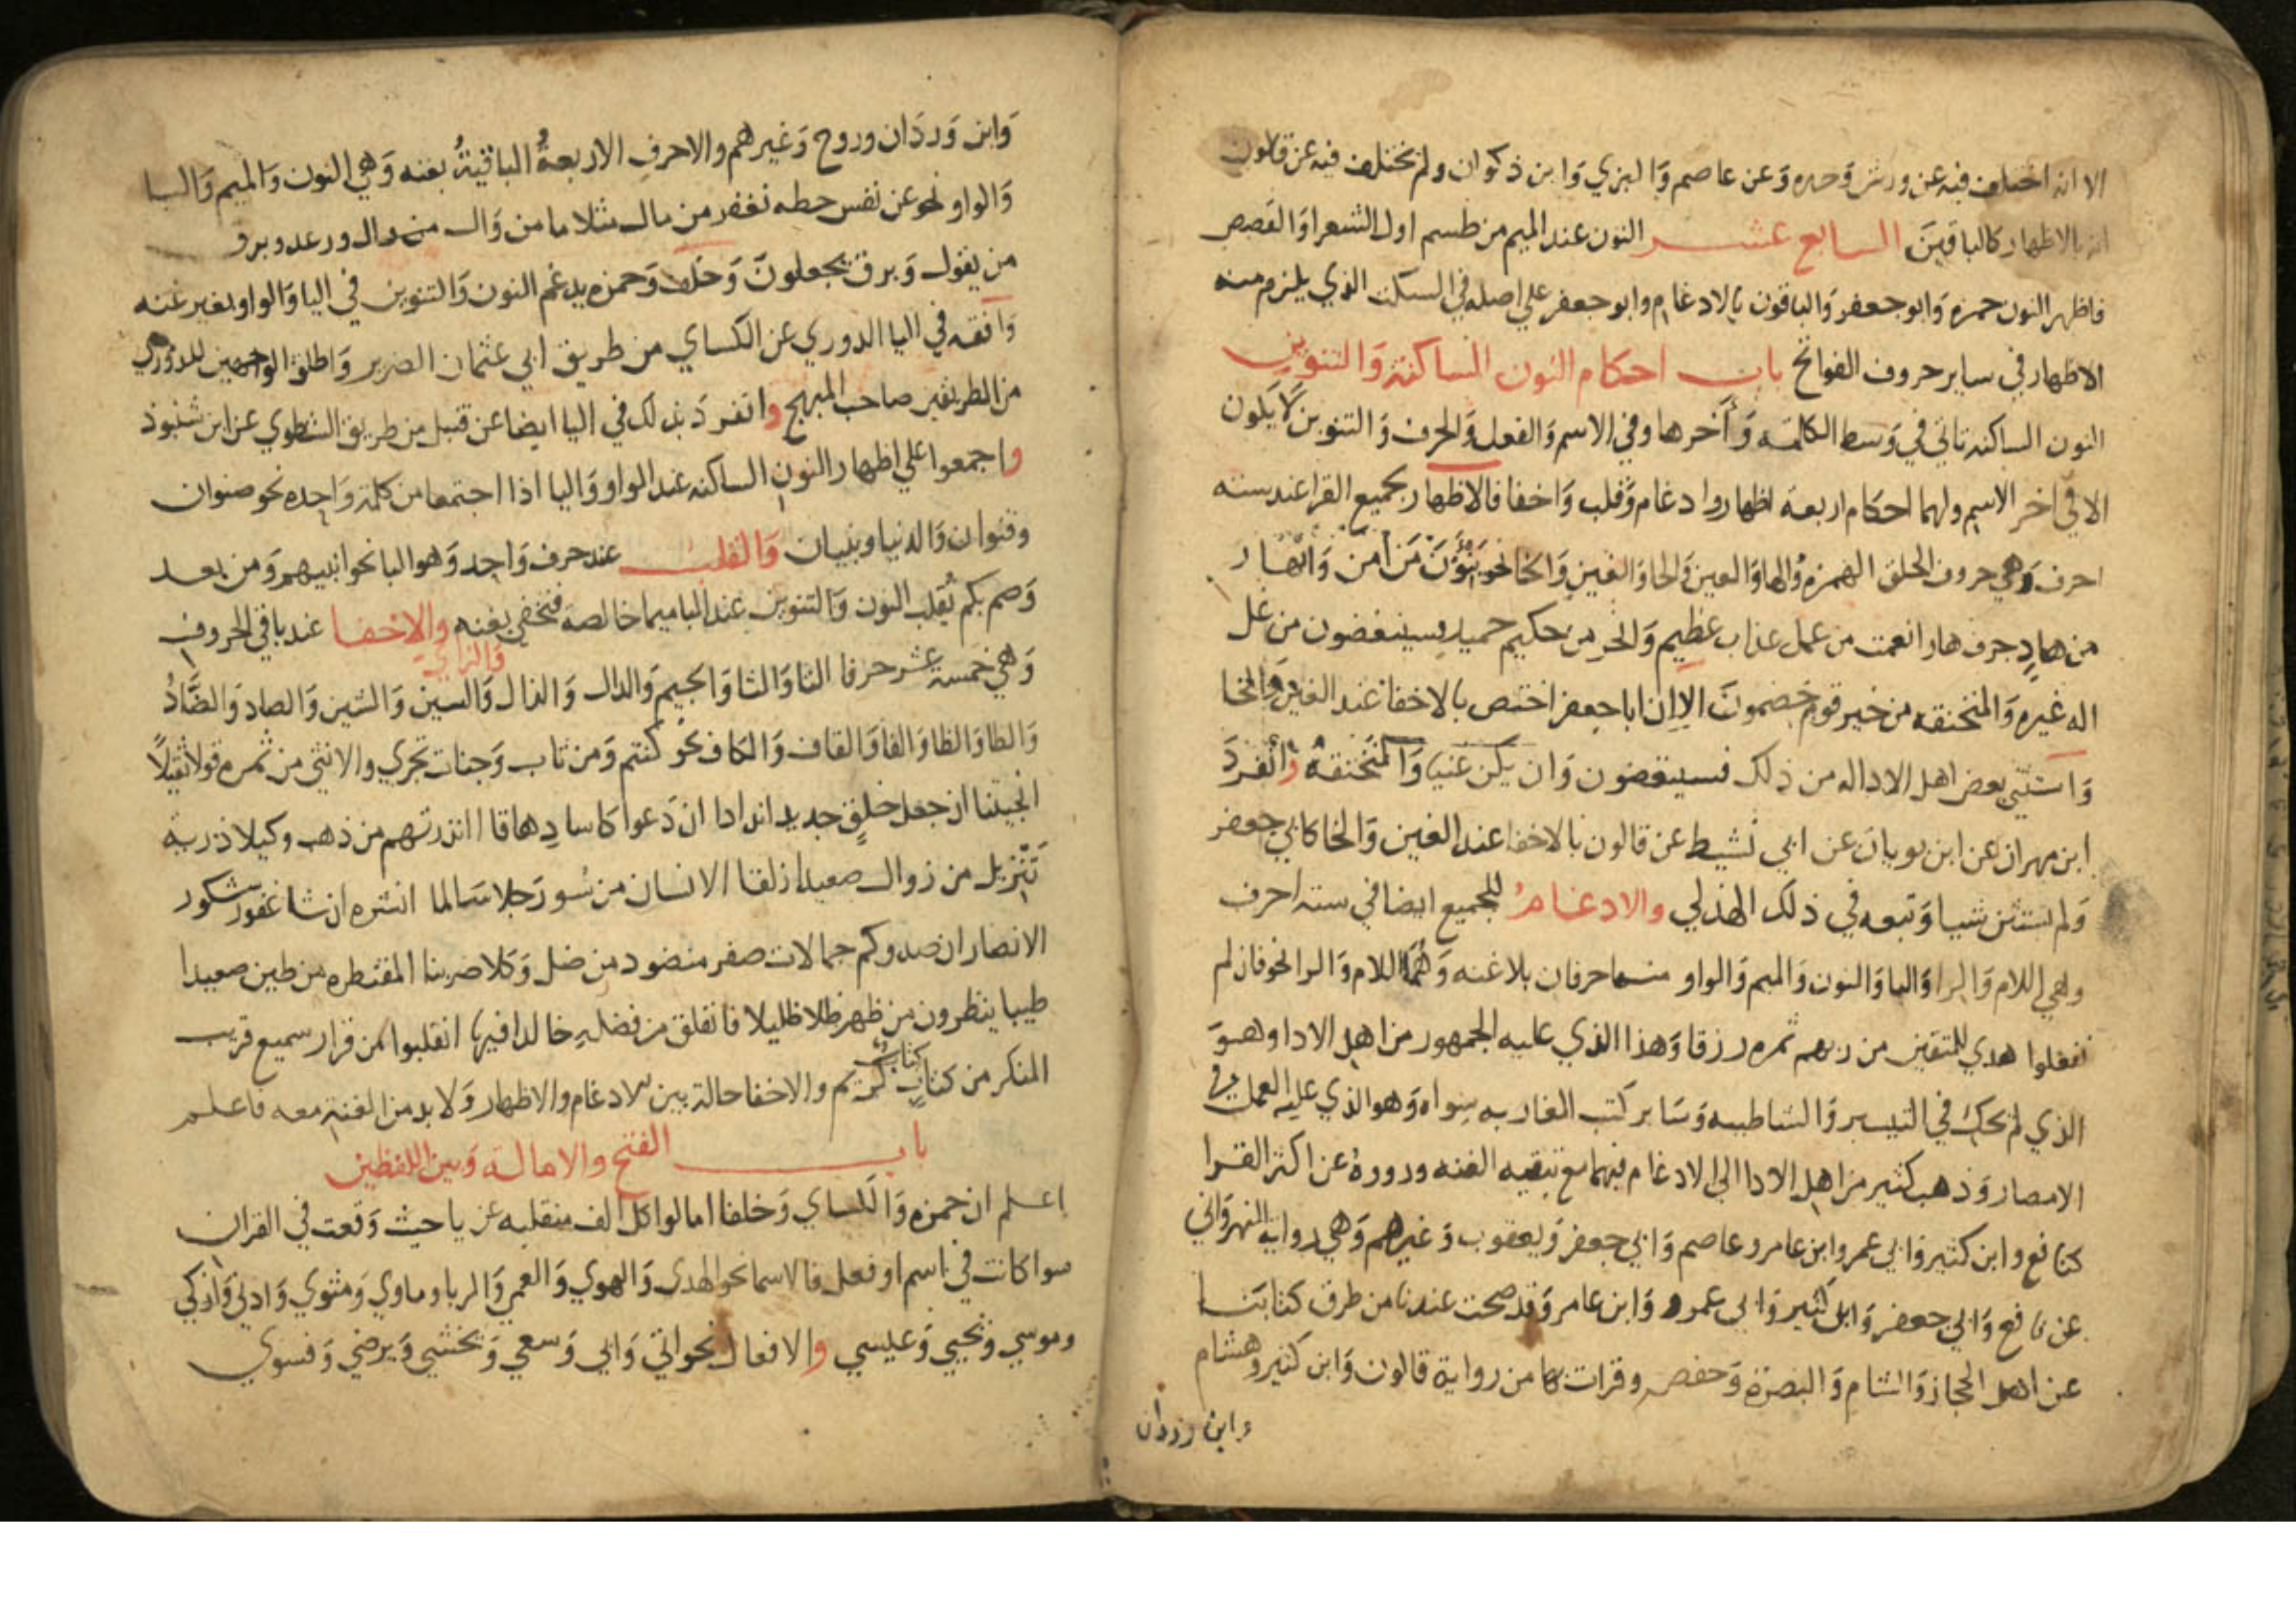 الا انه اختلف فيه عن ورش وَحده وَعن عاصم وَالبزي وَابن ذكوان ولم يختلف فيه عن قالون
انه بالاظهار كالباقينَ السابع عشر النون عند الميم من طسم اول الشعرا وَالقصص
فاظهر النون حمزه وَابو جعفر وَالباقون بالادغام وابو جعفر علي اصله في السكت الذي يلزم منه
الاظهار في ساير حروف الفواتح باب احكام النون الساكنة وَالتنوين
النون الساكنه تاتي في وَسط الكلمه وَآخرها وفي الاسم وَالفعل وَالحرف وَالتنوين لا يكون
الا في اخر الاسم ولهما احكام اربعه اظهار وادغام وَقلب وَاخفا فالاظهار لجميع القرا عند سته
احرف وَهي حروف الحلق الهمزه وَالها وَالعين وَالحا وَالغين وَالخا نحو يَنْؤَنَ مَن اَمن وَانهار
من هادٍ جرف هار انعمت من عمل عذاب عظيم وَانحر من حكيم حميد فسينغضون من غل
اله غيره وَالمنخنقه من خير قوم خصمونَ الا ان ابا جعفر اختص بالاخفا عند الغين وَالخا
وَاستثني بعض اهل الادا له من ذلك فسينغضون وَان يكن غنيا وَالمنخنقه وَانفردَ
ابن مهران عن ابن بويان عن ابي نشيط عن قالون بالاخفا عند الغين وَالخا كابي جعفر
وَلم يستثن شيا وَتبعه في ذلك الهذلي والادغام للجميع ايضا في سته احرف
وهي اللام وَالرا وَاليا وَالنون وَالميم وَالواو منها حرفان بلا غنه وَهُمَا اللام وَالرا نحو فان لم
تفعلوا هدي للمتقين من ربهم ثمره رزقا وَهذا الذي عليه الجمهور من اهل الادا وهوَ
الذي لم يحك في التيسير وَالشاطبيه وَسَاير كتب المغاربه سِواه وَهو الذي عليه العمل في
الامصار وَذهب كثير من اهل الادا الي الادغام فيهما مع تبقيه الغنه ورووهُ عن اكثر القرا
كنافع وابن كثير وَابي عمر وابن عامر وعاصم وَابي جعفر وَيعقوب وَغيرهم وَهي رواية النهرواني
عن نافع وَابي جعفر وَابن كثير وَابي عمرو وَابن عامر وَقد صحت عندنا من طرق كتابنا
عن اهل الحجاز وَالشام وَالبصرة وَحفص وقرات بها من رواية قالون وَابن كثير وهشام
وابن وردان
وَابن وَردَان وروح وَغيرهم والاحرف الاربعةُ الباقيةُ بغنه وَهي النون وَالميم وَاليا
وَالواو نحو عن نفس حطه نغفر من مال مثلا ما من وَال من وال ورعد وبرق
من يقول وَبرق يجعلونَ وَخلف وَحمزه يدغم النون وَالتنوين في اليا وَالواو بغير غنه
وَافقه في اليا الدوري عن الكساي من طريق ابي عثمان الضرير وَاطلق الوجهين للدوري
من الطريقين صاحب المبهج وانفردَ بذلك في اليا ايضا عن قنبل من طريق الشطوي عن ابن شنبوذ
واجمعوا علي اظهار النون الساكنه عند الواو وَاليا اذا اجتمعا من كلمة وَاحِده نحو صنوان
وقنوان وَالدنيا وبنيان وَالقلب عند حرف وَاحِد وَهو البا نحو انبيهم وَمن بعد
وَصم بكم تقلب النون وَالتنوين عند البا ميما خالصه فتخفي بغنه والاخفا عند باقي الحروف
وَهي خمسة عشر حرفا التا وَالثا وَالجيم وَالدال وَالذال وَالزاي وَالسين وَالشين وَالصاد وَالضَّادُ
وَالطا وَالظا وَالفا وَالقاف وَالكاف نحو كنتم وَمن تاب وَجنات تجري والانثي من ثمره قولا ثقيلاً
انجيتنا ان جعل خلقٍ جديد اندادا ان دَعوا كاسا دِهاقا اانذرتهم من ذهب وكيلا ذريه
تَنزيل من زوال صعيدا زلقا الانسان من سُو رَجلا سَالما انشره ان شا غفور شكور
الانصار ان صدوكم جمالات صفر منضود من ضل وَكلا ضربنا المقنطره من طين صعيدا
طيبا ينظرون من ظهر ظلا ظليلا فانفلق من فضلهِ خالدا فيها انقلبوا من قرار سميع قريب
المنكر من كتابٍ كتاب كريم والاخفا حالة بين الادغام والاظهار وَلا بد من الغنة معه فاعلم
باب الفتح والامالة وَبين اللفظين
اعلم ان حمزه وَالكساي وَخلفا امالوا كل الف منقلبه عن يا حيث وَقعت في القران
سوا كانت في اسم او فعل فالاسما نحو الهدي وَالهوي وَالعمي وَالربا وماوي وَمثوي وَادني وَازكي
وموسي وَيحيي وَعيسي والافعال نحو اتي وَابي وَسعي وَيخشي وَيرضي وَفسوي